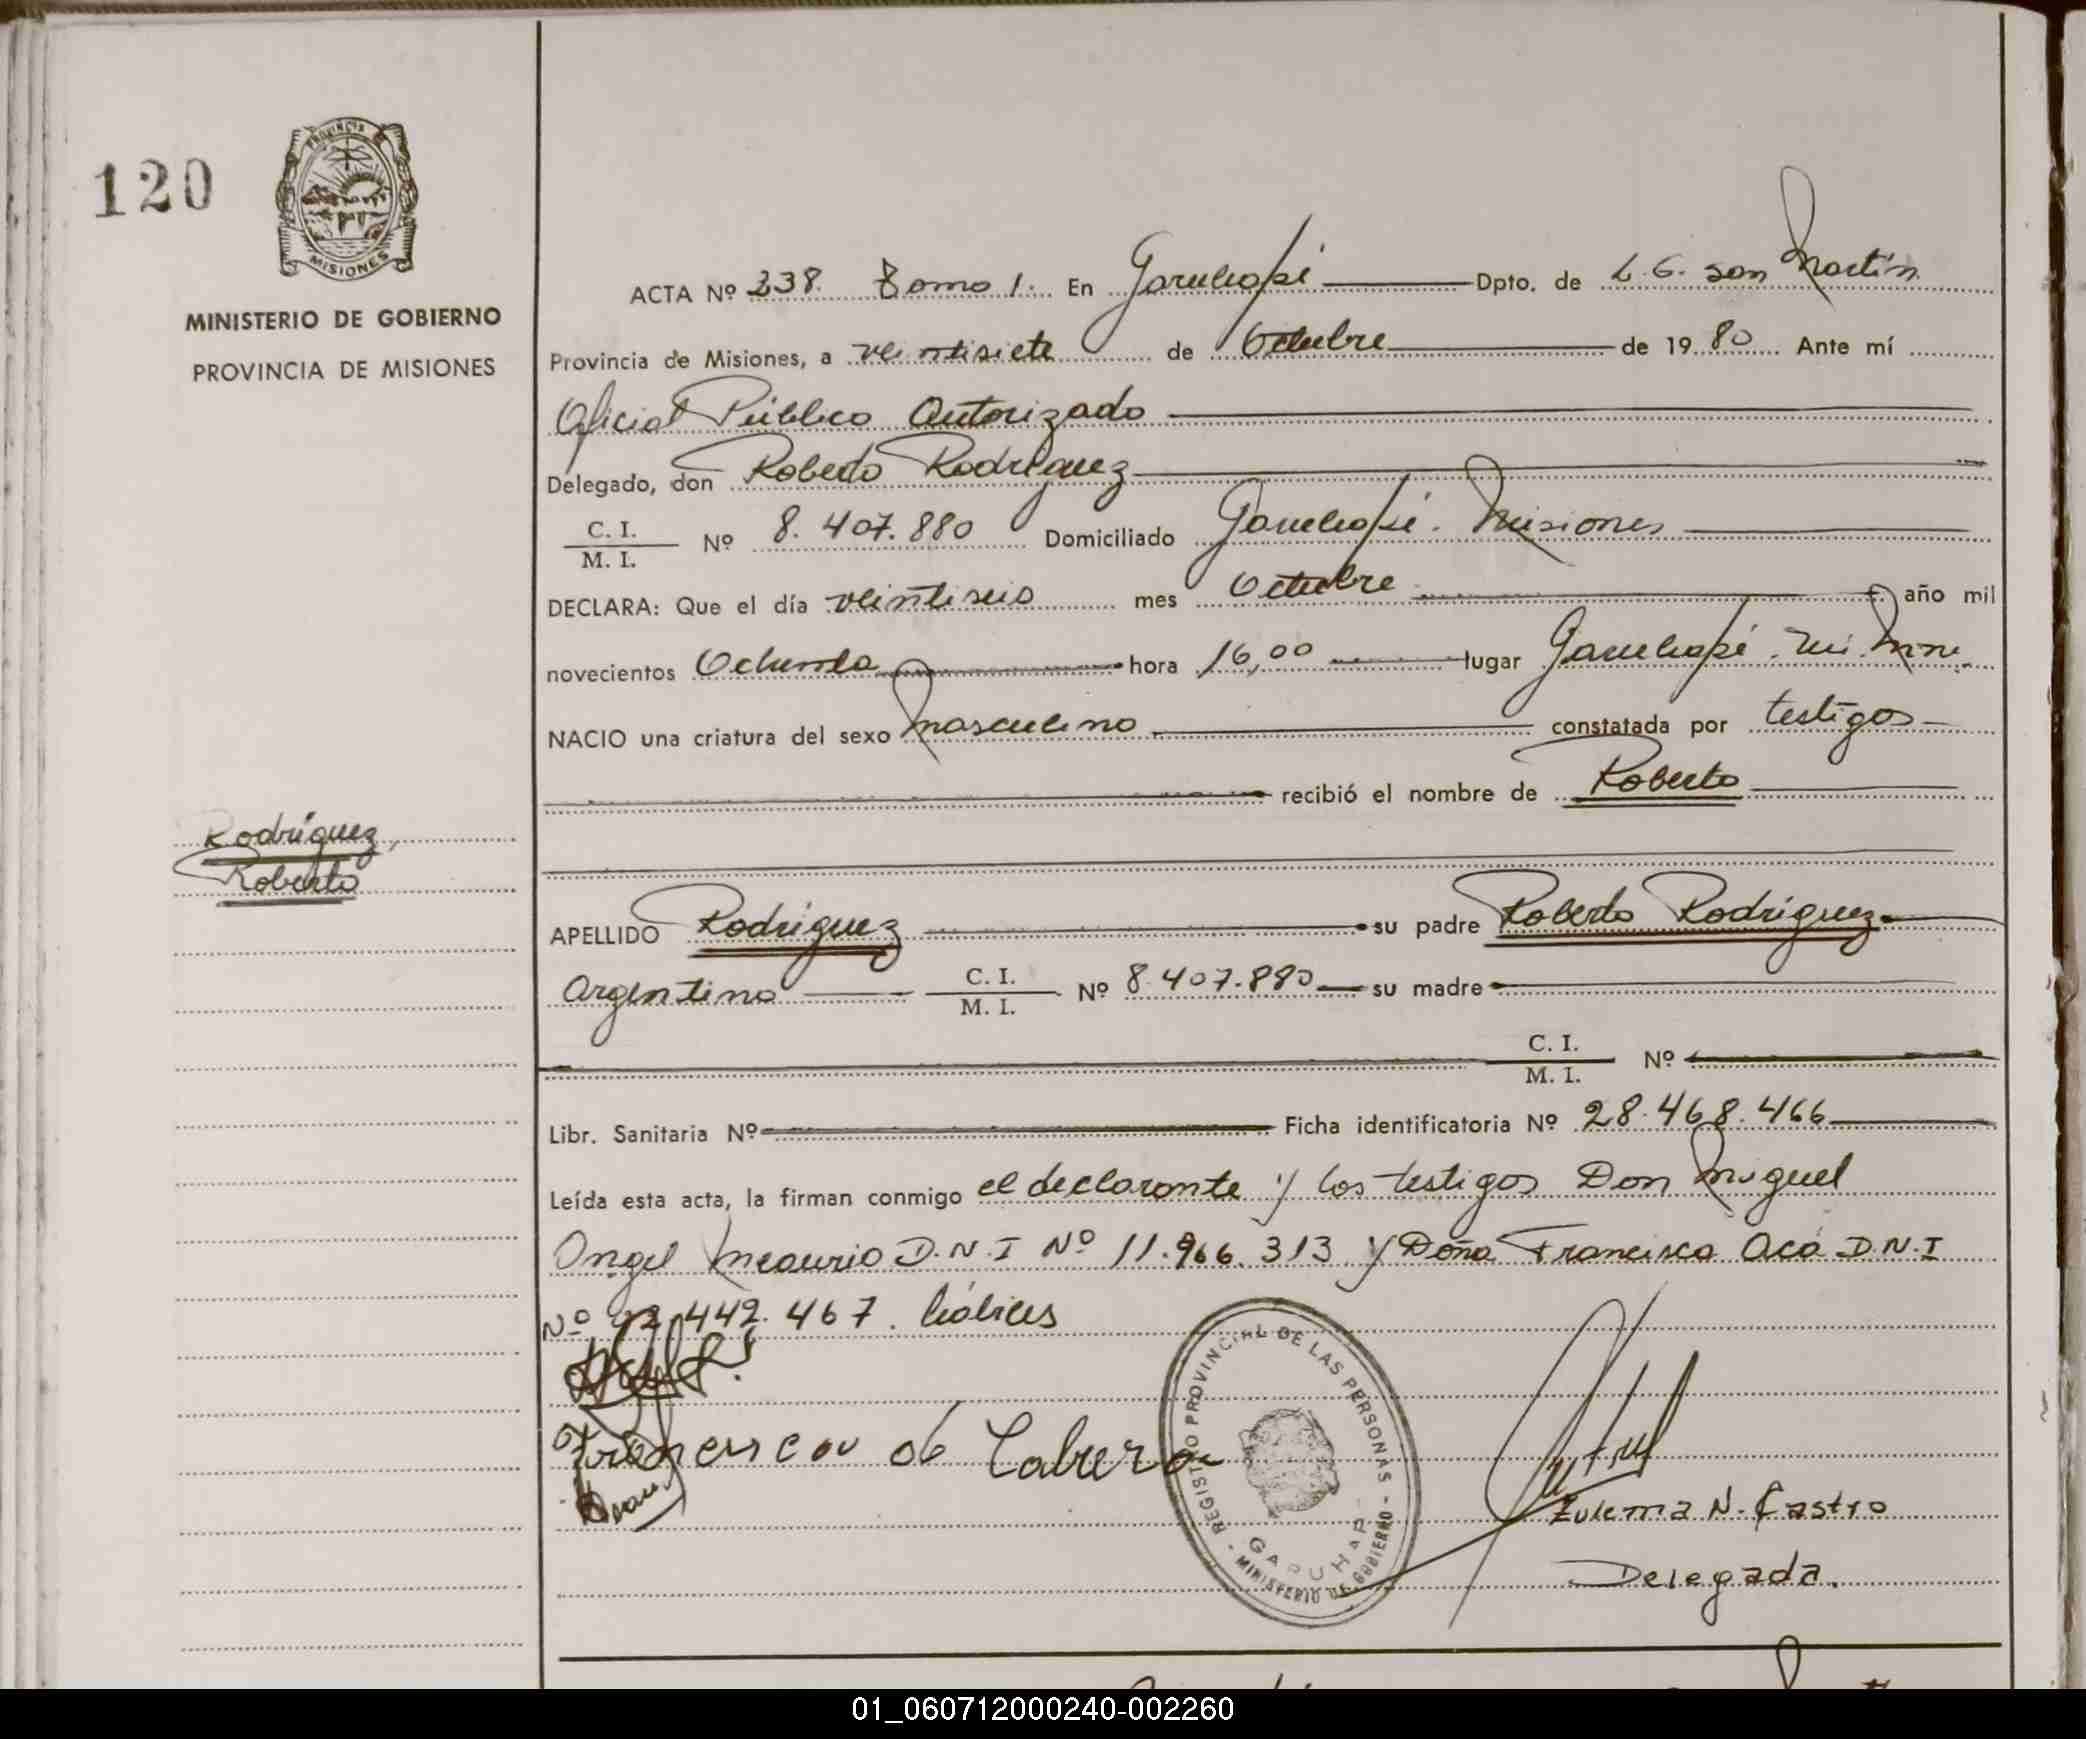 120
PROVINCIA
MISIONES
MINISTERIO DE GOBIERNO
PROVINCIA DE MISIONES
ACTA Nº 238 Tomo 1. En Garuhapé Dpto. de L. G. San Martín
Provincia de Misiones, a veintisiete de Octubre de 1980 Ante mí
Oficial Público Autorizado
Delegado, don Roberto Rodríguez
C. I.
M. I. Nº 8.407.880 Domiciliado Garuhapé. Misiones
DECLARA: Que el día veintiseis mes Octubre año mil
novecientos Ochenta hora 16,00 lugar Garuhapé.
NACIO una criatura del sexo masculino constatada por testigos
recibió el nombre de Roberto
Rodríguez,
Roberto
APELLIDO Rodríguez su padre Roberto Rodríguez
argentino C. I.
M. I. Nº 8.407.880 su madre
C. I.
M. I. Nº
Libr. Sanitaria Nº Ficha identificatoria Nº 28.468.466
Leída esta acta, la firman conmigo el declarante y los testigos Don Miguel
Angel Meaurio D.N.I Nº 11.966.313 y Doña Francisca Aca D.N.I
Nº 442.467. hábiles
de Cabrera
REGISTRO PROVINCIAL DE LAS PERSONAS
- MINISTERIO DE GOBIERNO -
Zulema N. Castro
Delegada.
01_060712000240-002260